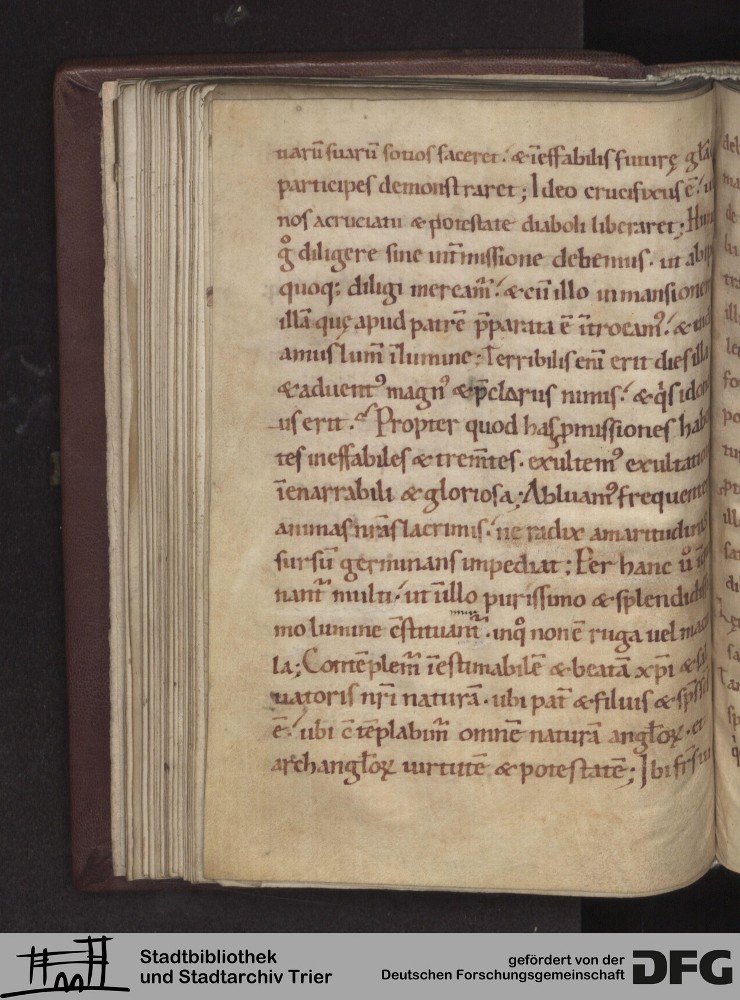 uarū suarū socios faceret. & īeffabilis futurę gl̄a
participes demonstraret; Ideo crucifixus ē
nos a cruciatu & potestate diaboli liberaret;
g̊ diligere sine int̄missione debemus. ut
quoq; diligi meream̄. & cū illo in mansionem
illā quę apud patrē p̄parata ē īntroeam᷒. &
amus lum̄ ī lumine; Terribilis enī erit dies illa
& aduent᷒ magn᷒ & p̄clarus nimis.
us erit. Propter quod has ꝓmissiones habe
tes ineffabiles & trem̄tes. exultem᷒ exultatio
īenarrabili & gloriosa; Abluam᷒ frequent
animas nr̄as lacrimis. ne radix amaritudinis
sursū germinans impediat; Per hanc
nant̄ multi. ut ī illo purissimo & splendidissi
mo lumine c̄stituant̄. inq̊ non ē ruga uel macu
la; Contēplem̄ īestimabilē & beatā xp̄i &
uatoris nr̄i naturā. ubi pat̄ & filius & sp̄s
ē. ubi c̄tēplabim̄ omnē naturā angl̄oꝝ. et
archangl̄oꝝ uirtutē & potestatē; Ibi
Stadtbibliothek
und Stadtarchiv Trier
gefördert von der
Deutschen Forschungsgemeinschaft
DFG